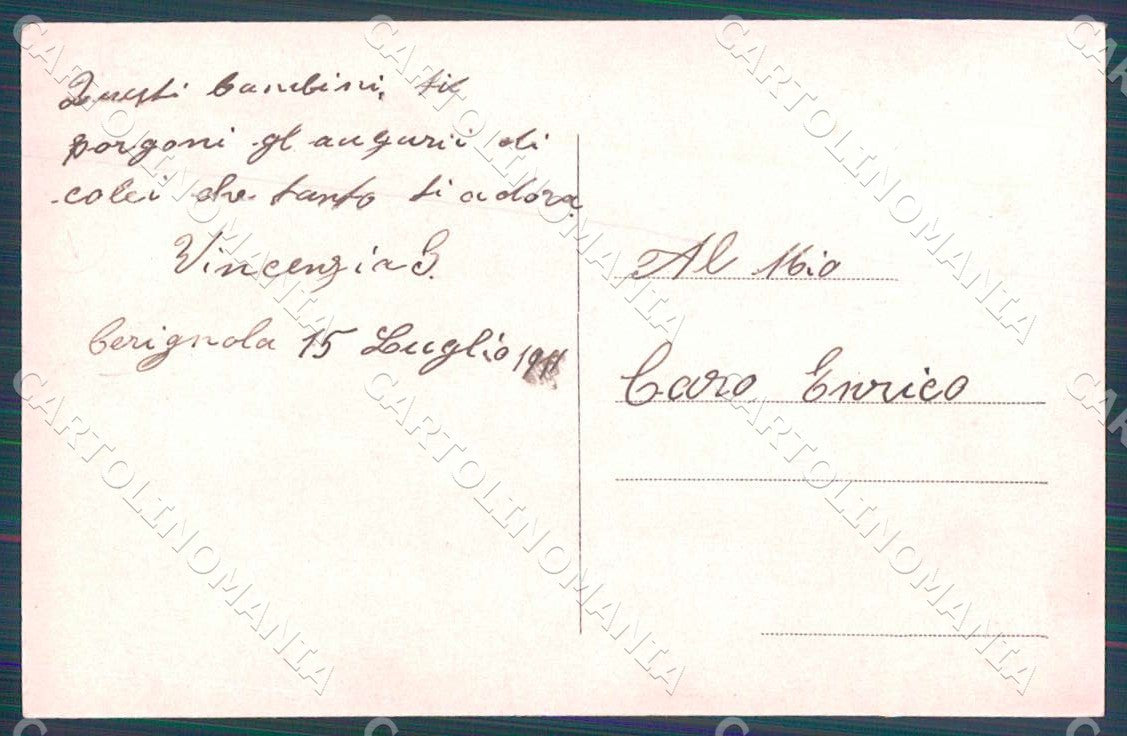 Questi bambini, ti
porgoni gl augurii di
colei che tanto ti adora
Vincenzia G.
Cerignola 15 Luglio
Al Mio
Caro Enrico
CARTOLINOMANIA
CARTOLINOMANIA
CARTOLINOMANIA
CARTOLINOMANIA
CARTOLINOMANIA
CARTOLINOMANIA